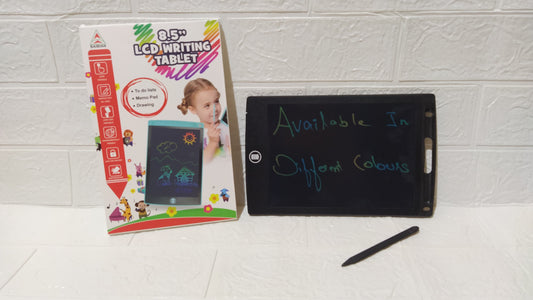 8.5"
LCD WRITING
TABLET
• To do lists
• Memo Pad
• Drawing
Available In
Differnt Colours